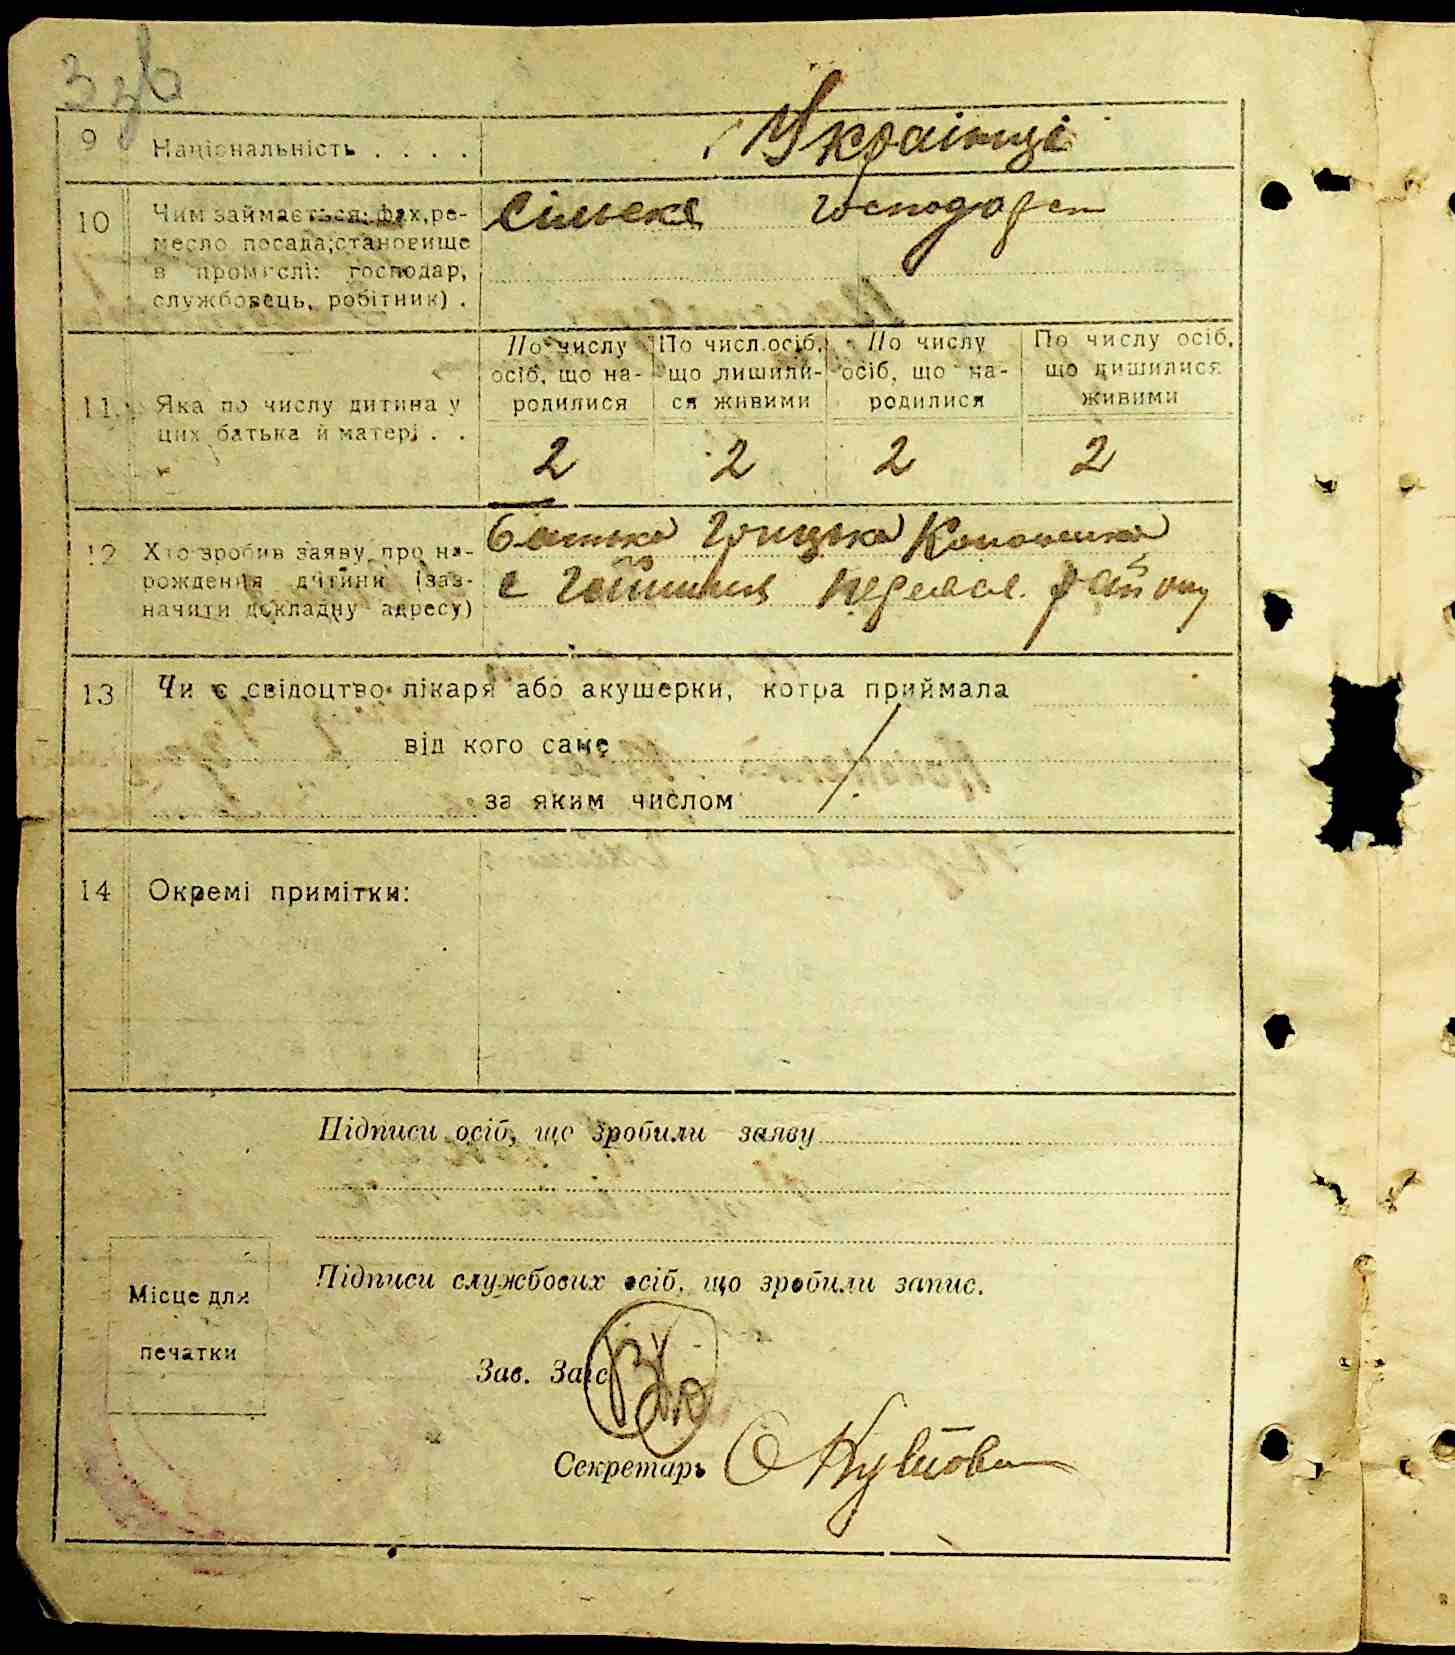 3 зв
9 Національність . . . . Українці
10 Чим займається: фах, ре-
месло посада; становище
в промислі: господар,
службовець, робітник) .
Сільске господарст
По числу осіб, що на-родилися
По числ. осіб, що лишили-ся живими
По числу осіб, що на-родилися
По числу осіб, що лишилися живими
11 Яка по числу дитина у
цих батька й матері . .
2 2 2 2
12 Хто зробив заяву про на-
рождення дитини (заз-
начити докладну адресу)
батько Грицько Кононенко
с району
13 Чи є свідоцтво лікаря або акушерки, котра приймала
від кого саме
за яким числом /
14 Окремі примітки:
Підписи осіб, що зробили заяву
Місце для
печатки
Підписи службових осіб, що зробили запис.
Зав. Загс
Секретарь